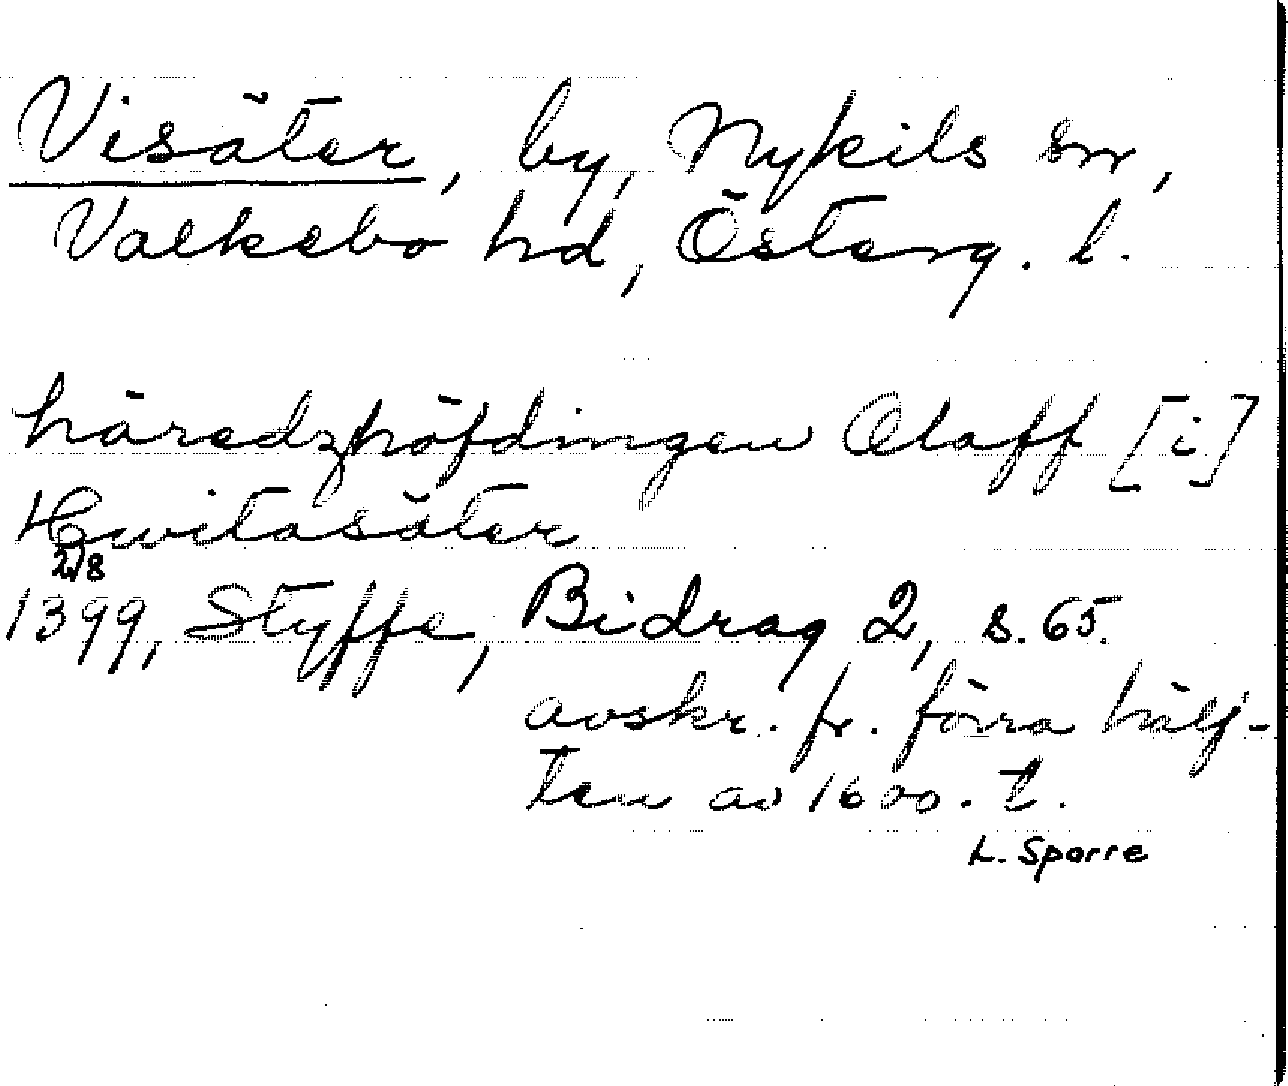 Visäter, by, Nykils sn,
Valkebo hd, Österg. l.
häredzhöfdingen Olaff [i]
Hwitasäter
2/8
1399, Styffe, Bidrag 2, s. 65.
avskr. fr. förra hälf-
ten av 1600-t.
L. Sporre